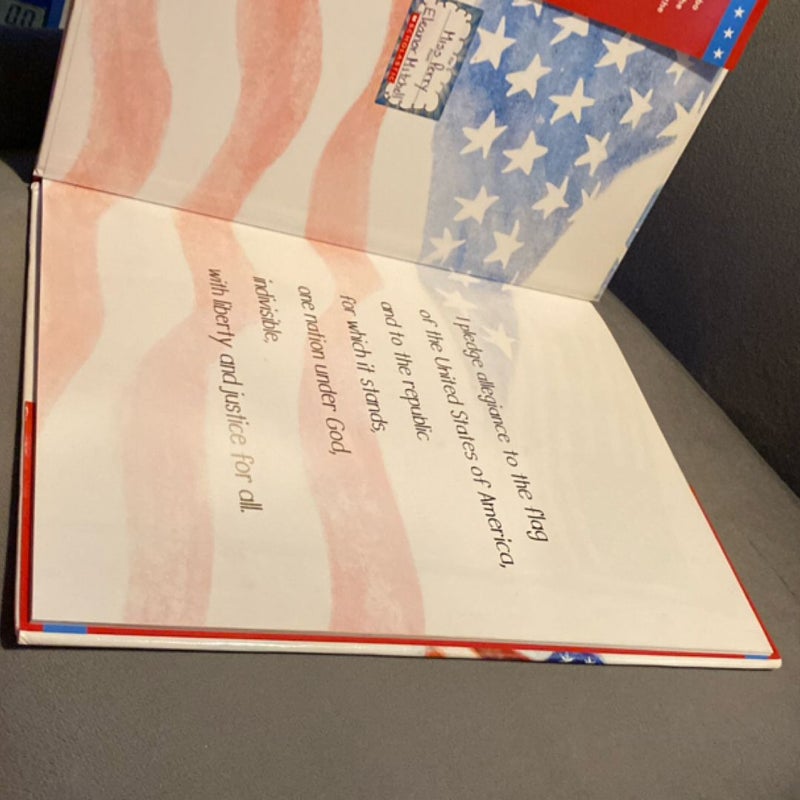 Miss Perry
Eleanor Mitchell
SCHOLASTIC
I pledge allegiance to the flag
of the United States of America,
and to the republic
for which it stands,
one nation under God,
indivisible,
with liberty and justice for all.